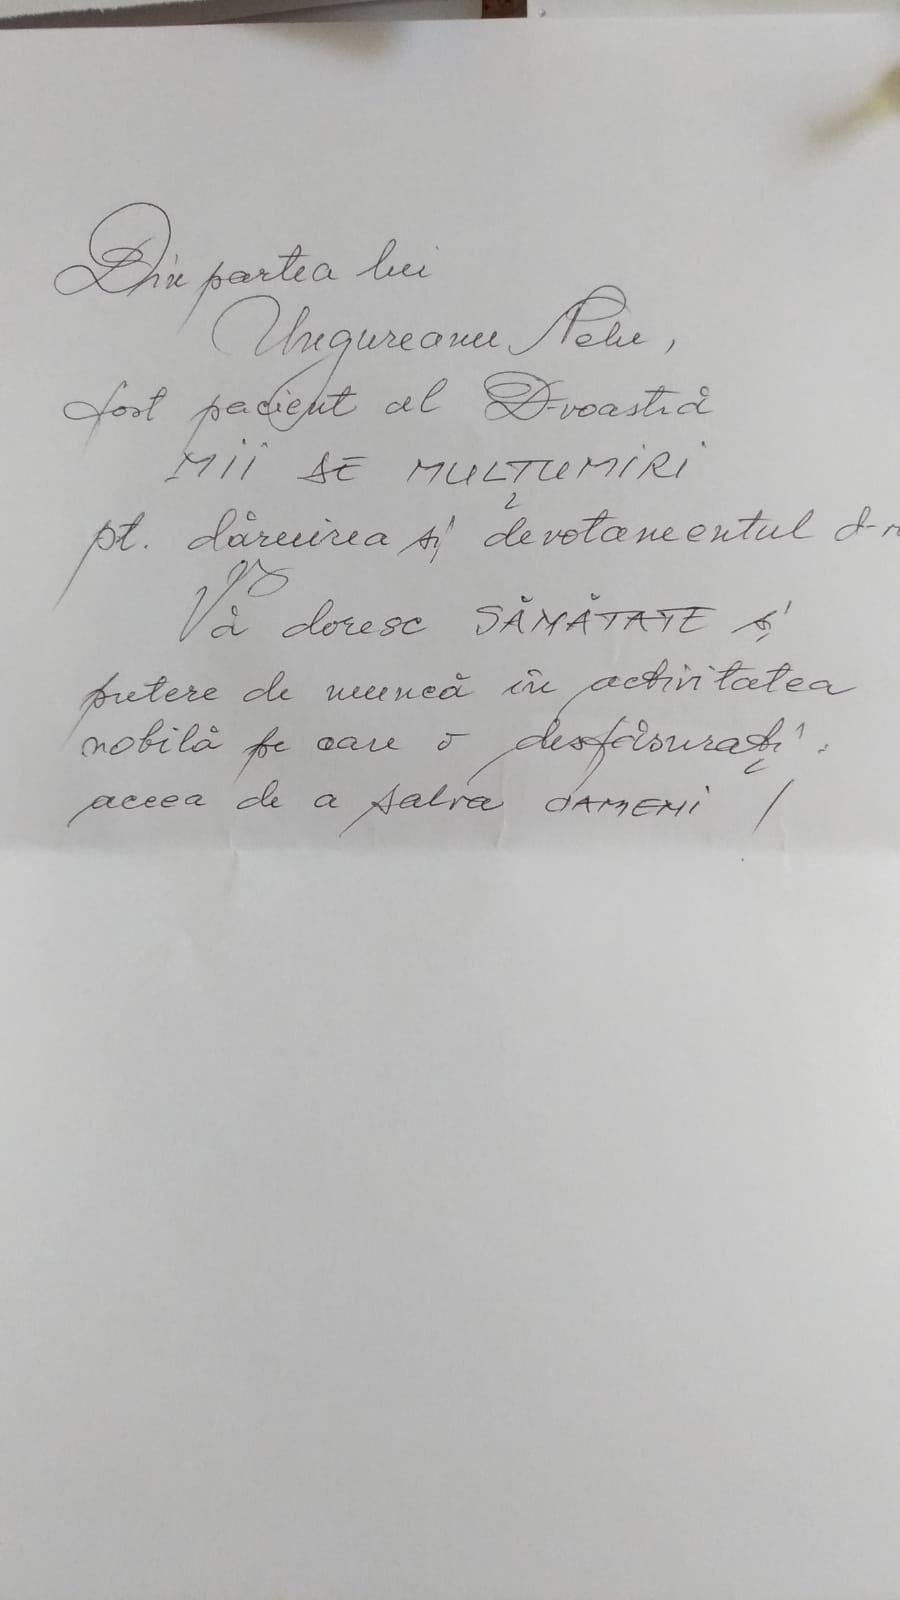 Din partea lui
Ungureanu Nelu,
fost pacient al D-voastră
MII DE MULȚUMIRI
pt. dăruirea și devotamentul d-
Vă doresc SĂNĂTATE și
putere de muncă în activitatea
nobilă pe care o desfășurați:
aceea de a salva OAMENI !